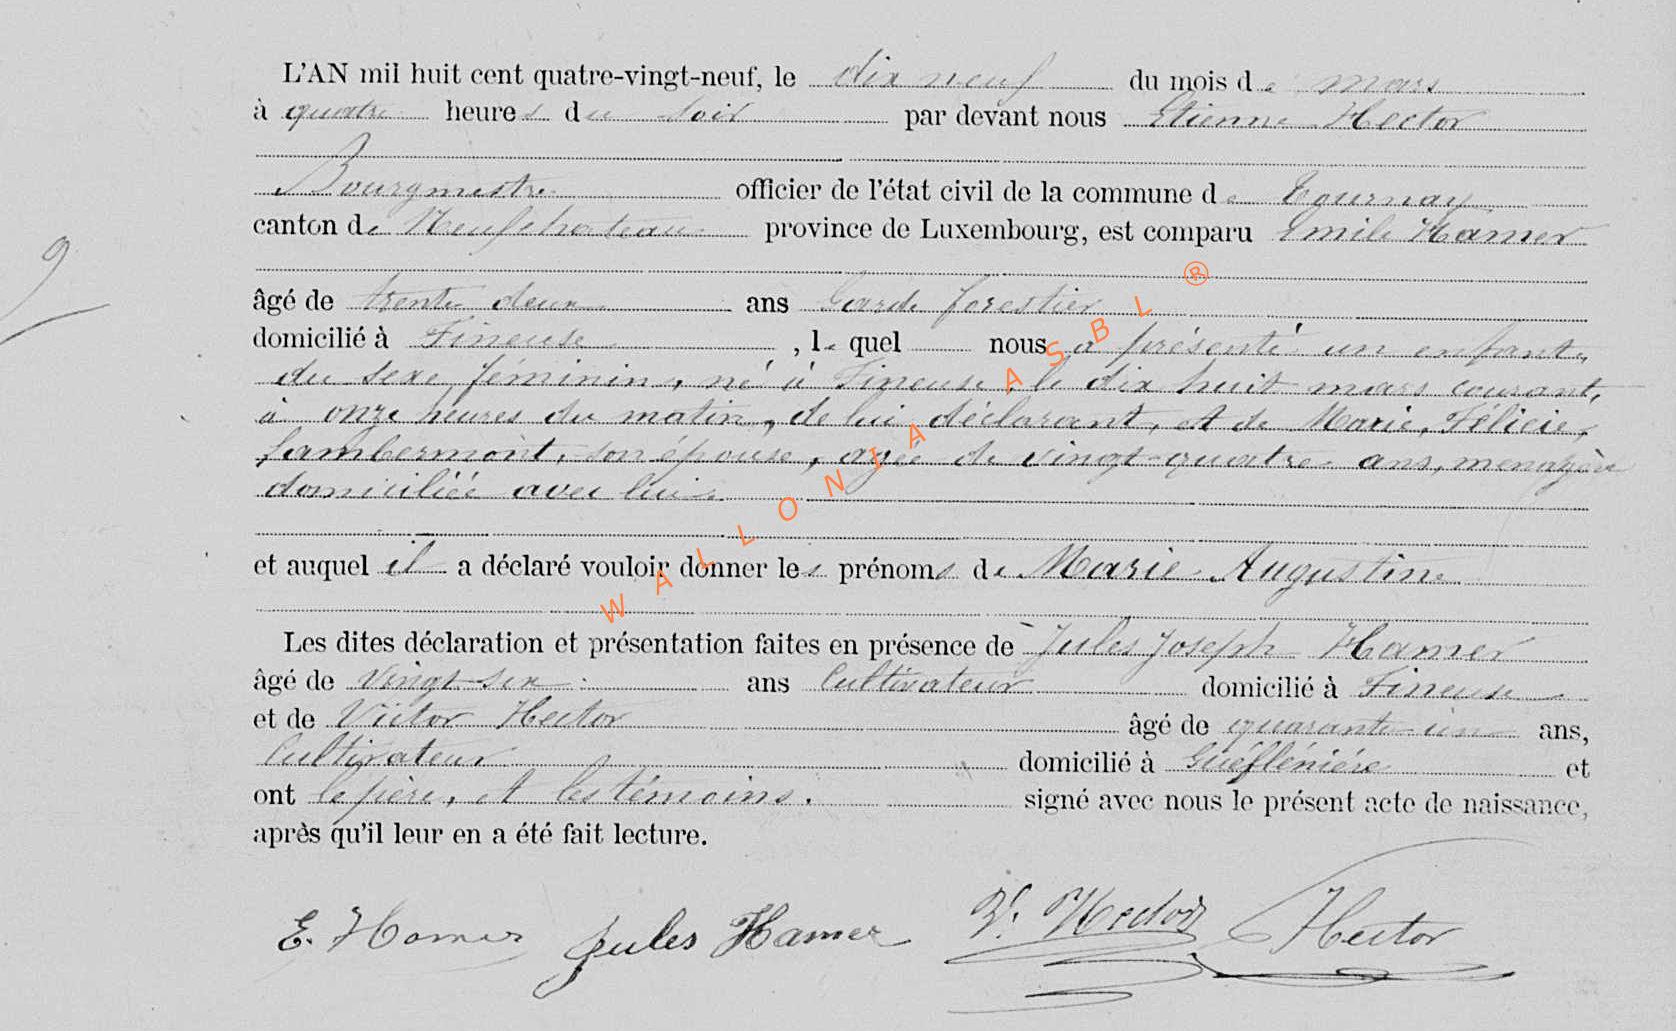 L'AN mil huit cent quatre-vingt-neuf, le dix neuf du mois de mars
à quatre heures du soir par devant nous Etienne Hector
Bourgmestre officier de l'état civil de la commune de Tournay
canton de Neufchateau province de Luxembourg, est comparu Emile Hamer
âgé de trente deux ans Garde forestier
domicilié à Fineuse, lequel nous a présenté un enfant,
du sexe féminin, né à Fineuse, le dix huit mars courant,
à onze heures du matin, de lui déclarant, et de Marie, Félicie,
Lambermont, son épouse, agée de vingt-quatre ans, menagère
domiciliée avec lui
et auquel il a déclaré vouloir donner les prénoms de Marie Augustine
Les dites déclaration et présentation faites en présence de Jules Joseph Hamer
âgé de vingt six ans Cultivateur domicilié à Fineuse
et de Victor Hector âgé de quarante un ans,
Cultivateur domicilié à Guéflénière et
ont le père, et les témoins. signé avec nous le présent acte de naissance,
après qu'il leur en a été fait lecture.
E. Hamer Jules Hamer V. Hector Hector
9
WALLONIA ASBL ®